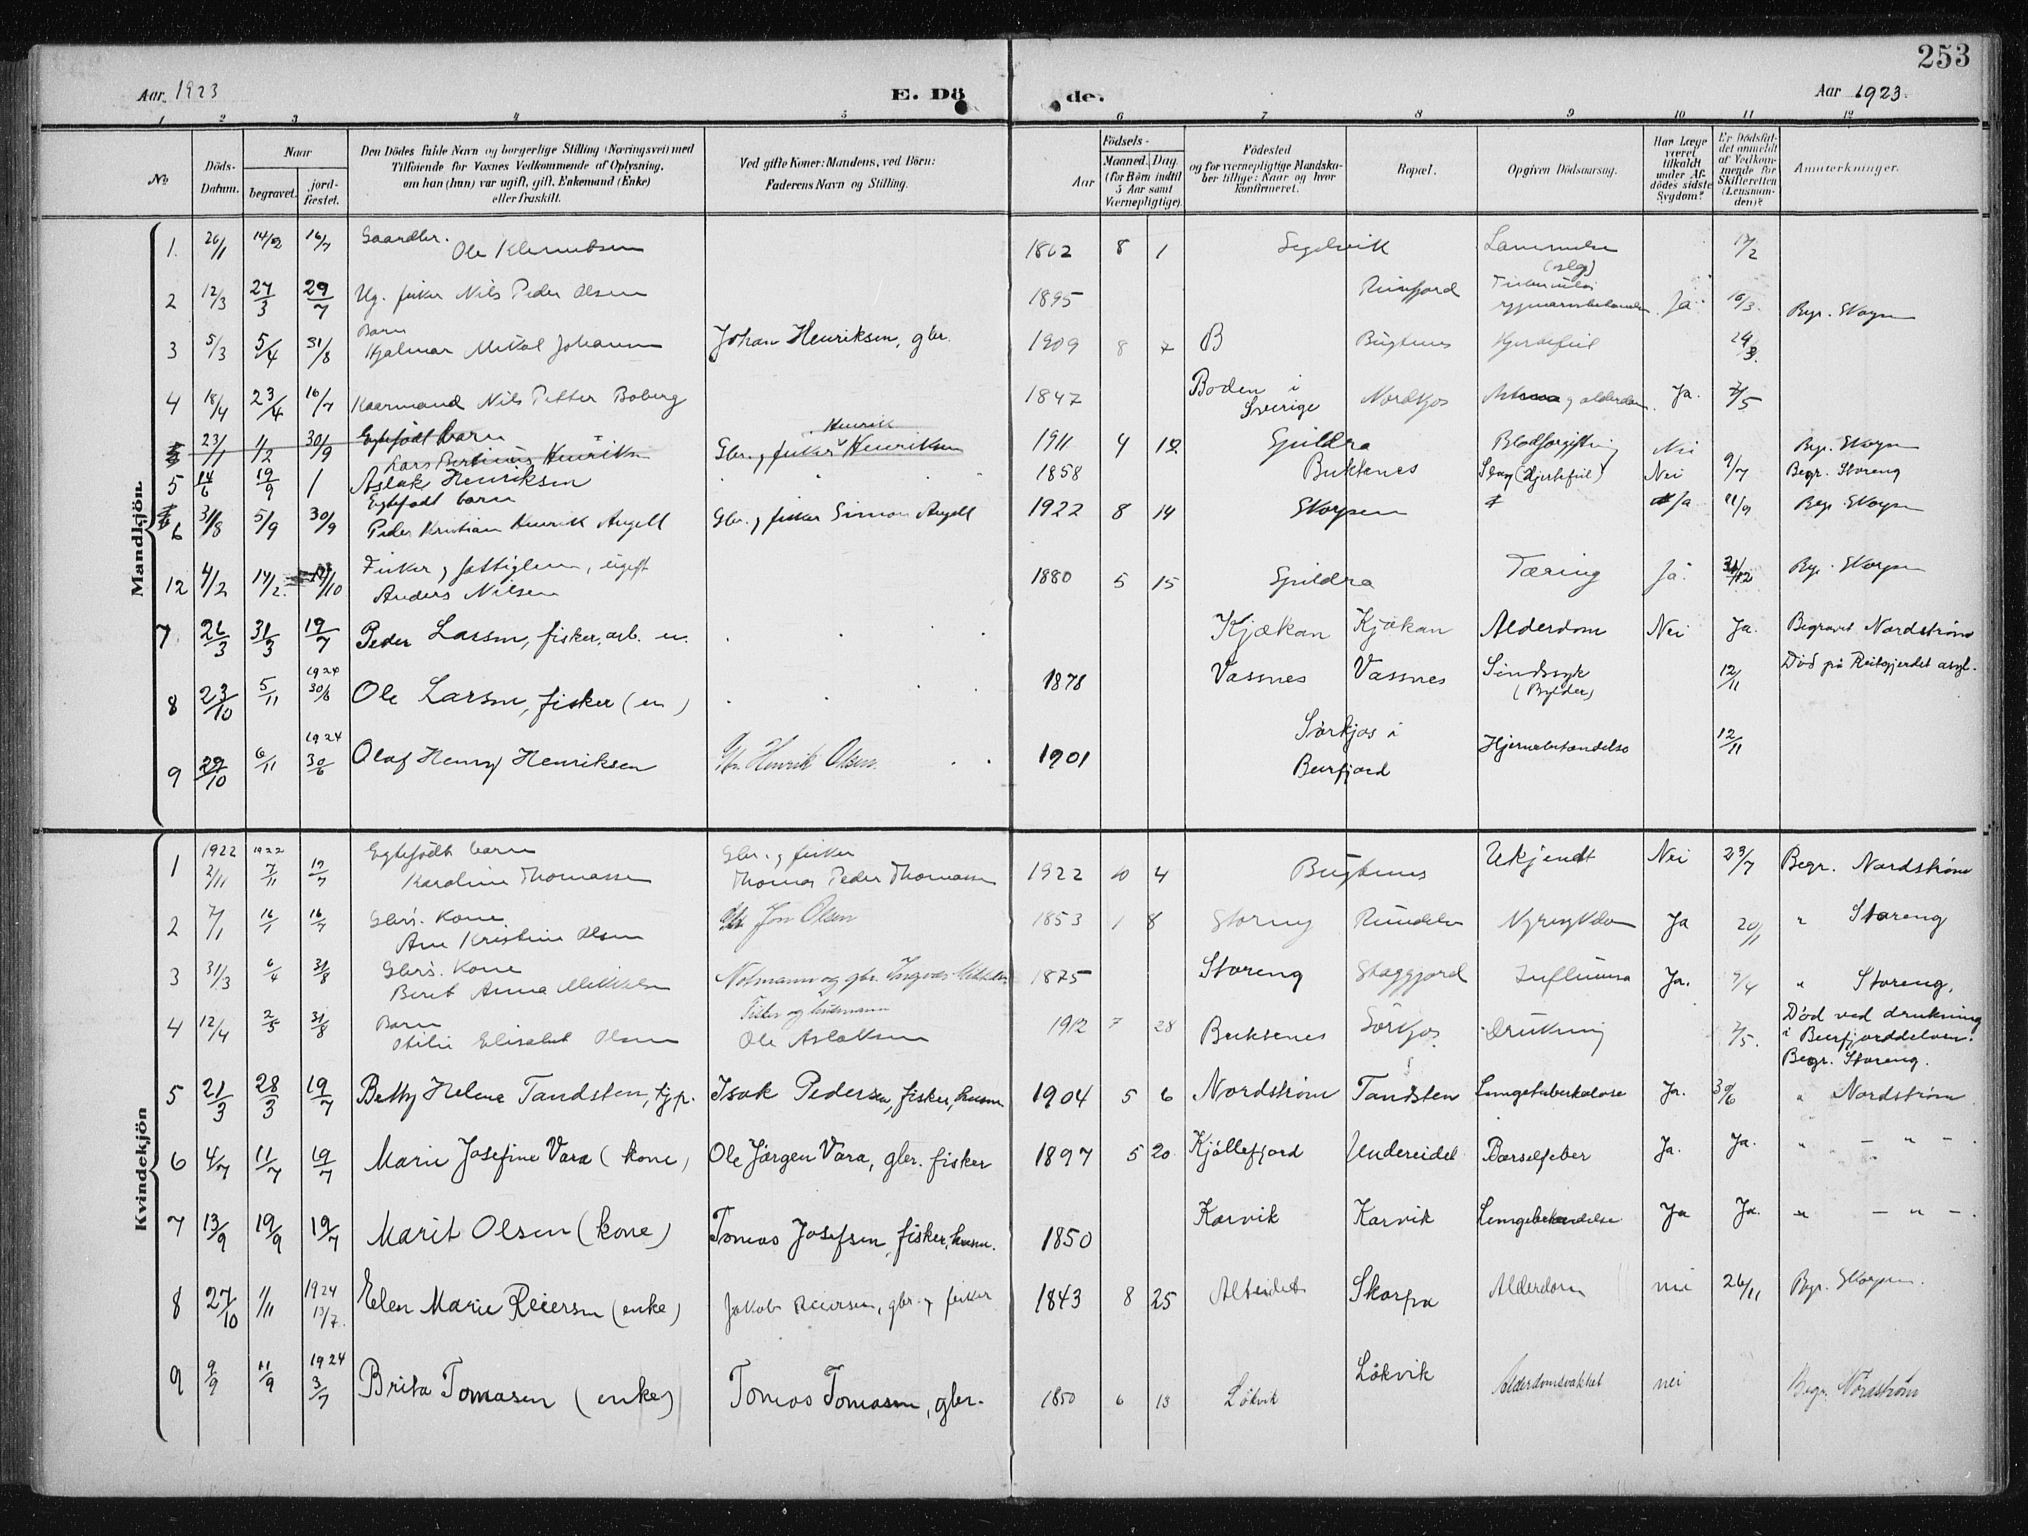 253
Aar 1923 E. Dö de. Aar 1923.
1 2 3 4 5 6 7 8 9 10 11 12
No
Döds-Datum.
Naar
begravet.
jord-fæstet.
Den Dödes fulde Navn og borgerlige Stilling (Næringsvei) med
Tilföiende for Voxnes Vedkommende af Oplysning,
om han (hun) var ugift, gift, Enkemand (Enke)
eller fraskilt.
Ved gifte Koner: Mandens, ved Börn:
Faderens Navn og Stilling.
Födsels-
Aar
Maaned. Dag.
(for Börn indtil
5 Aar samt
Værnepligtige).
Födested
og for værnepligtige Mandska-
ber tillige: Naar og hvor
konfirmeret.
Bopæl.
Opgiven Dödsaarsag.
Har Læge
været
tilkaldt
under Af-
dödes sidste
Sygdom?
Er Dödsfal-
det anmeldt
af Vedkom-
mende for
Skifteretten
(Lensman-
den)?
Anmærkninger.
Mandkjön.
1. 26/1 14/2 16/7 Gaardbr. Ole Klemetsen 1862 8 1 Segelvik 17/2
2 12/3 27/3 29/7 Ug. fisker Nils Peder Olsen 1895 Ja. 16/3. Begr. Skorpen
3 5/3 5/4 31/8 Barn Hjalmar Mikal Johansen Johan Henriksen, gbr. 1909 8 7 B Bugtenes Hjertefeil
4 18/4 23/4 16/7 Kaarmand Nils Petter Boberg 1847 Boden i Sverige Nordkjos alderdom. Ja. 2/5
23/1 1/2 30/9 Egtefödt barn Lars Bertinus Henriksen Gbr. og fisker Henrik Henriksen 1911 4 12 Spildra Blodforgiftning Nei Begr. Skorpen
5 14/6 19/9 1 Aslak Henriksen 1858 Buktenes Slag (Hjertefeil) Nei 9/7 Begr. Storeng
6 31/8 5/9 30/9 Egtefödt barn Peder Kristian Henrik Angell Gbr. og fisker Simon Angell 1922 8 14 Skorpen Ja 11/9 Begr. Skorpen
12 4/2 14/2. /10 Fisker og fattiglem, ugift Anders Nilsen 1880 5 15 Spildra Tæring Ja. Begr. Skorpen
7. 26/3 31/3 19/7 Peder Larsen, fisker, arb. en. Kjækan Kjækan Alderdom Nei Ja. Begravet Nordström
8 23/10 5/11 1924 30/6 Ole Larsen, fisker (en) 1878 Vassnes Vassnes Sindssyk (Bylder) 12/11 Död på Reitgjerdet asyl.
9 29/10 6/11 1924 30/6 Olaf Henry Henriksen Gbr. Henrik Olsen. 1901 Sörkjos i Burfjord Hjernebetændelse 12/11
Kvindekjön
1 1922 2/11 1922 7/11 19/7 Egtefödt barn Karoline Thomassen Gbr. og fisker Thomas Peder Thomassen 1922 10 4 Bugtenes Ukjendt Nei 23/7 Begr. Nordström
2 7/1 16/1 16/7 Gbrs. Kone Ane Kristine Olsen Gbr Jon Olsen 1853 1 8 Storeng Nyresykdom Ja 20/1 " Storeng
3 31/3 6/4 31/8 Gbrs. Kone Berit Anna Mikkelsen Notmann og gbr. Ingvar Mikkelsen 1875 Storeng Influensa Ja. 7/4 " Storeng.
4 12/4 2/5 31/8 Barn Otilie Elisabet Olsen Fisker og husmann Ole Aslaksen 1912 7 28 Buktenes Sörkjos Drukning 2/5. Död ved drukning i Burfjorddelven. Begr. Storeng.
5 21/3 28/3 19/7 Betty Helene Tandsten, tjp. Isak Pedersen, fisker, husm 1904 5 6 Nordström Tandsten Lungetuberkulose Ja. 30/6 " Nordström
6 4/7 11/7 19/7 Marie Josefine Vara (kone) Ole Jörgen Vara, gbr. fisker 1897 5 20 Kjöllefjord Undereidet Barselfeber Ja. Ja. " – " –
7 13/9 19/9 19/7 Marit Olsen (kone) Tomas Josefsen, fisker, husm. 1850 Karvik Karvik Lungebetændelse Ja Ja. " – " –
8 27/10 1/11 1924 13/7. Elen Marie Reiersen (enke) Jakob Reiersen, gbr. og fisker 1843 8 25 Alteidet Skorpa Alderdom nei 26/11 Begr. Skorpen.
9 9/9 11/9 1924 3/7 Brita Tomasen (enke) Tomas Tomasen, gbr. 1850 6 13 Lökvik Lökvik Alderdomsvakhet nei Begr. Nordström